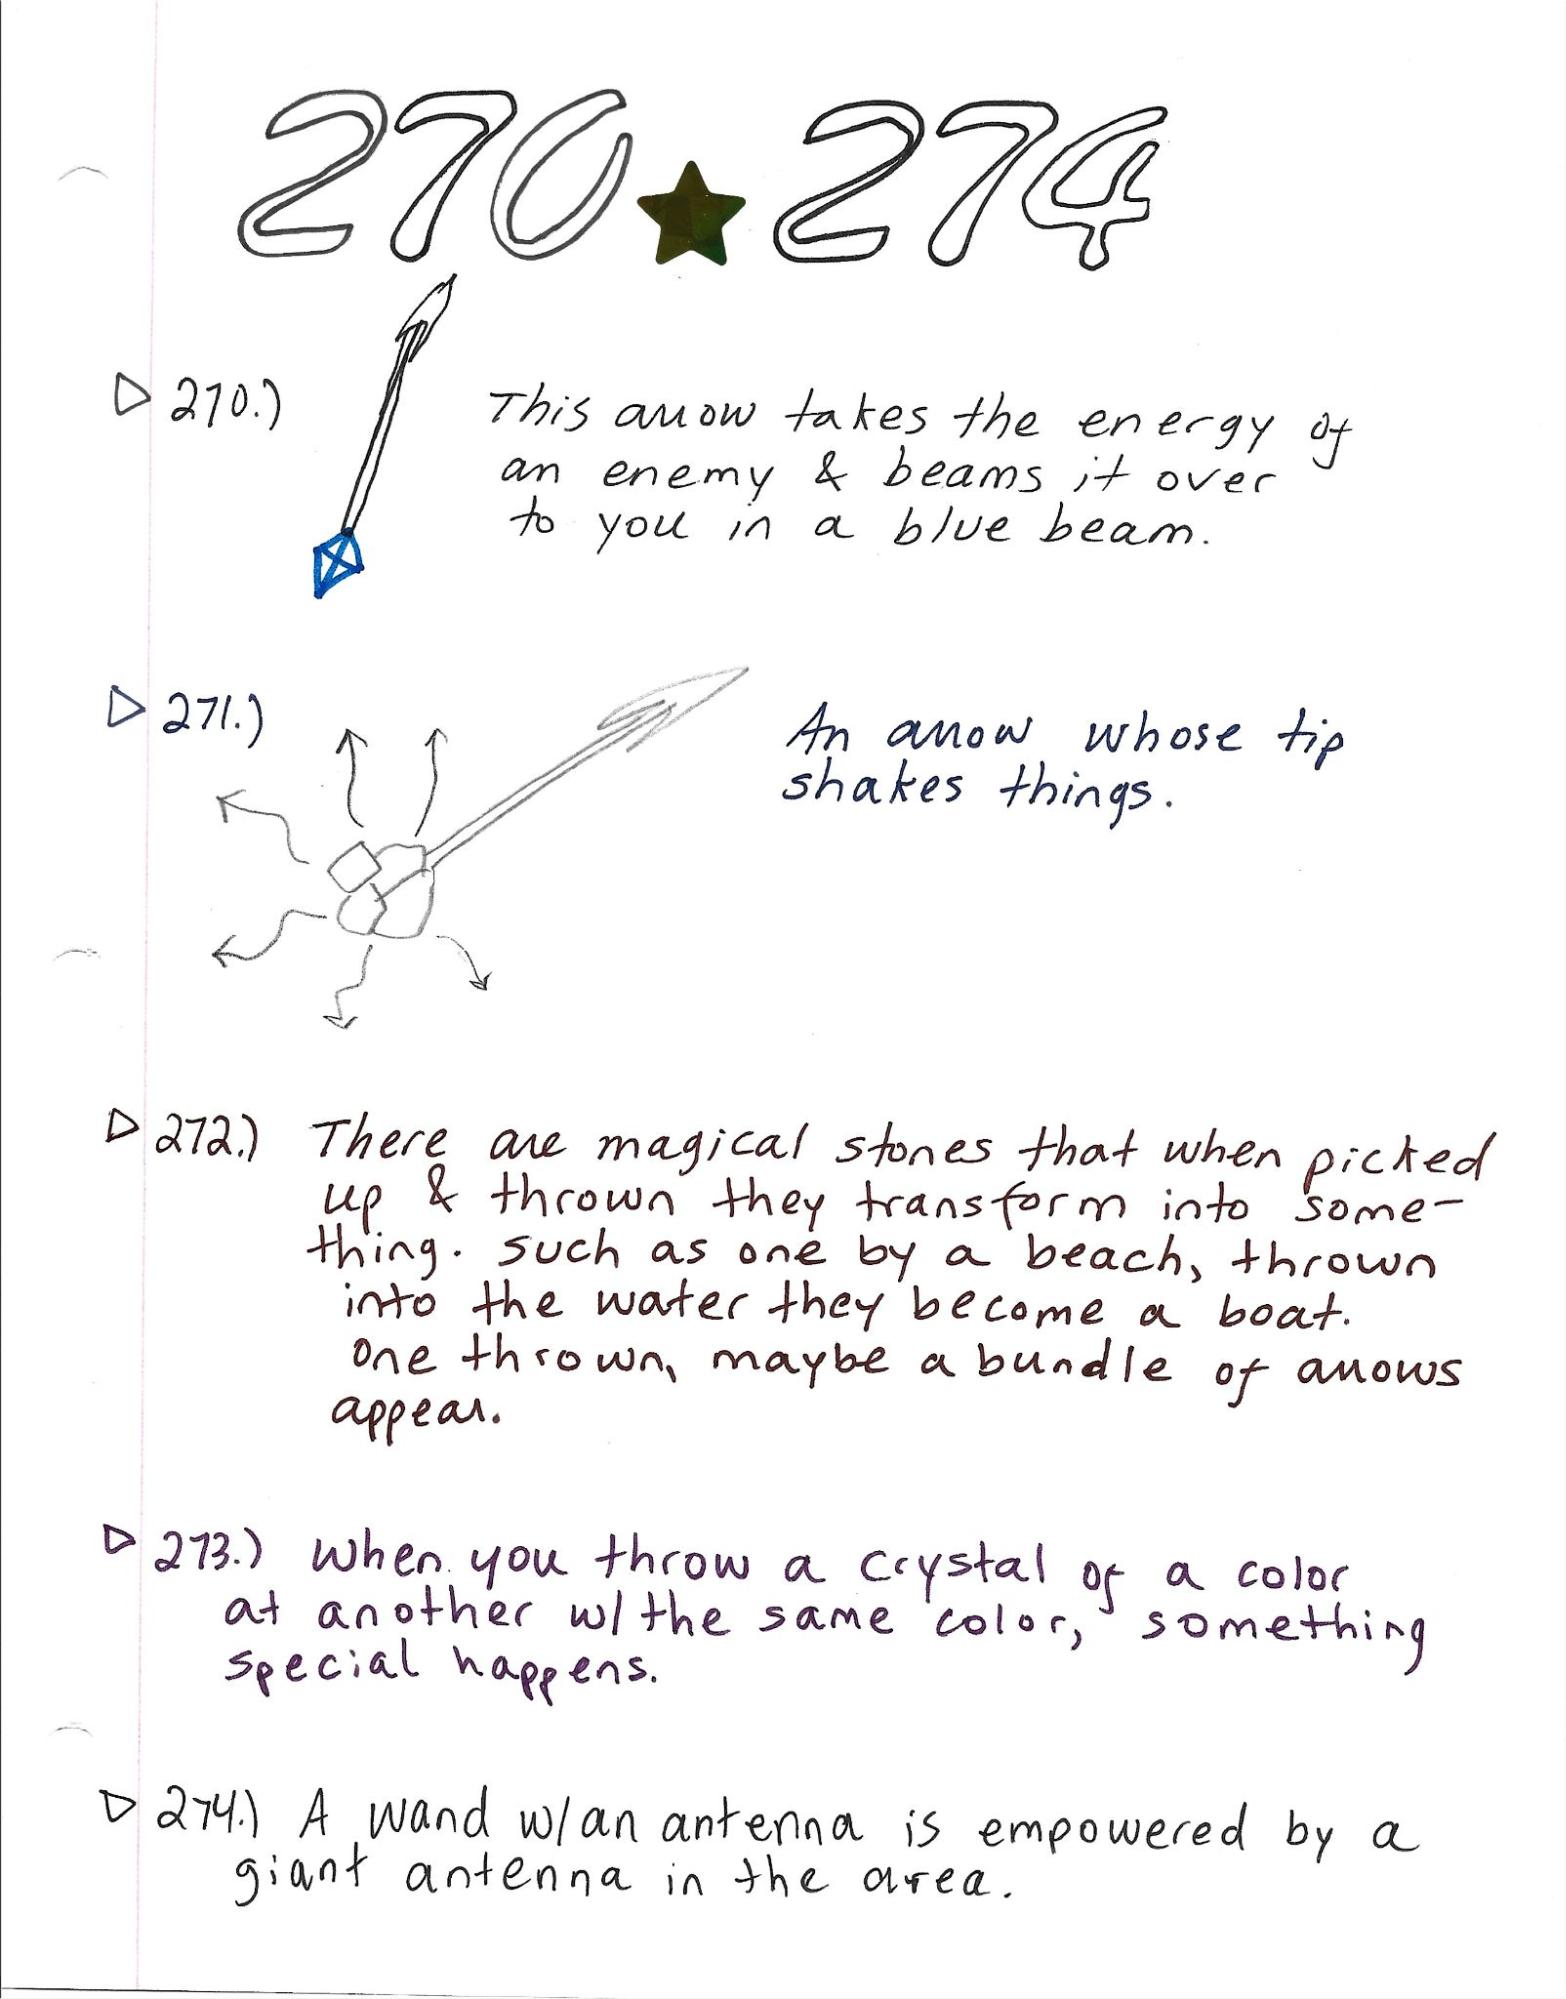 270 ★ 274
▷ 270.) This arrow takes the energy of
an enemy & beams it over
to you in a blue beam.
▷ 271.) An arrow whose tip
shakes things.
▷ 272.) There are magical stones that when picked
up & thrown they transform into some-
thing. Such as one by a beach, thrown
into the water they become a boat.
One thrown, maybe a bundle of arrows
appear.
▷ 273.) When you throw a crystal of a color
at another w/ the same color, something
special happens.
▷ 274.) A wand w/ an antenna is empowered by a
giant antenna in the area.